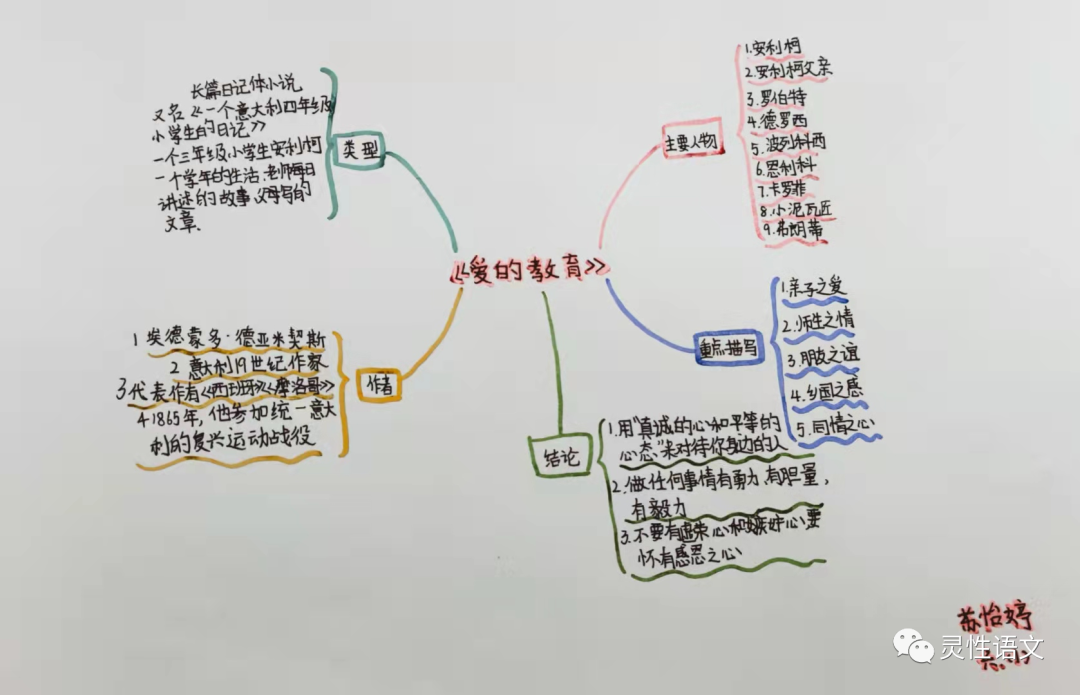 《爱的教育》
类型
长篇日记体小说
又名《一个意大利四年级
小学生的日记》
一个三年级小学生安利柯
一个学年的生活、老师每日
讲述的故事、父母写的
文章、
作者
1 埃德蒙多·德亚米契斯
2 意大利19世纪作家
3 代表作有《西班牙》《摩洛哥》
4 1865年,他参加统一意大
利的复兴运动战役
主要人物
1.安利柯
2.安利柯父亲
3.罗伯特
4.德罗西
5.波列科西
6.恩利科
7.卡罗菲
8.小泥瓦匠
9.弗朗蒂
重点描写
1.亲子之爱
2.师生之情
3.朋友之谊
4.乡国之感
5.同情之心
结论
1.用“真诚的心和平等的
心态”来对待你身边的人
2.做任何事情有勇力、有胆量,
有毅力
3.不要有虚荣心和嫉妒心要
怀有感恩之心
苏怡婷
灵性语文